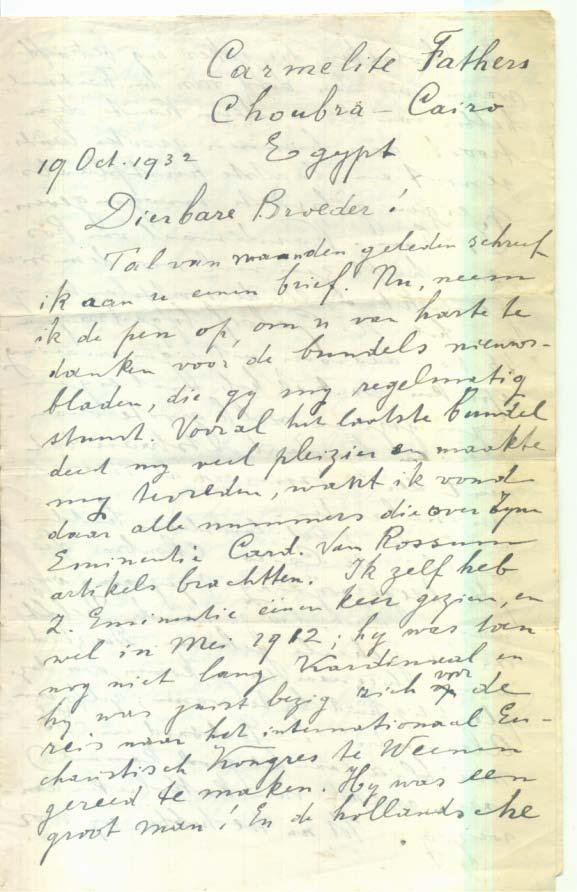 Carmelite Fathers
Choubrä - Cairo
Egypt
19 Oct. 1932
Dierbare Broeder!
Tal van maanden geleden schreef
ik aan u eenen brief. Nu, neem
ik de pen op, om u van harte te
danken voor de bundels nieuws-
bladen, die gy my regelmatig
stuurt. Vooral het laatste bundel
deed my veel pleizier en maakte
my tevreden, want ik vond
daar alle nummers die over Zyne
Eminentie Card. Van Rossum
artikels brachtten. Ik zelf heb
Z. Eminentie eenen keer gezien, en
wel in Mei 1912; hy was toen
nog niet lang Kardinaal en
hy was juist bezig zich voor de
reis naar het internationaal Eu-
charistisch Kongres te Weenen
gereed te maken. Hy was een
groot man! En de hollandsche